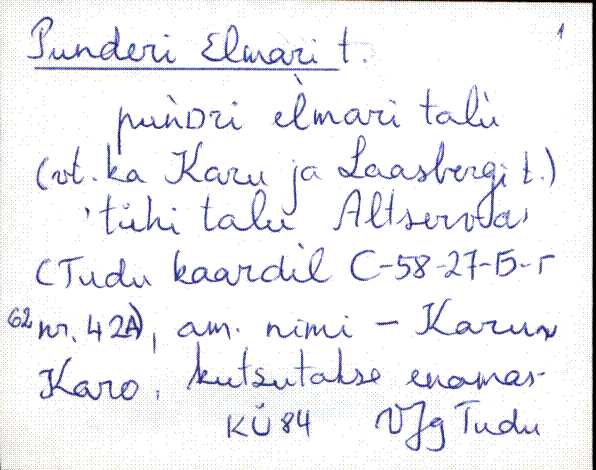 Punderi Elmari t. 1
pun̆Dri èlmari talù
(vt. ka Karu ja Laasbergi t.)
'tühi talu Altserva'
(Tudu kaardil C-58-27-Б-г
62 nr. 42A), am. nimi – Karu ~
Karo, kutsutakse enamas-
KÜ 84 VJg Tudu